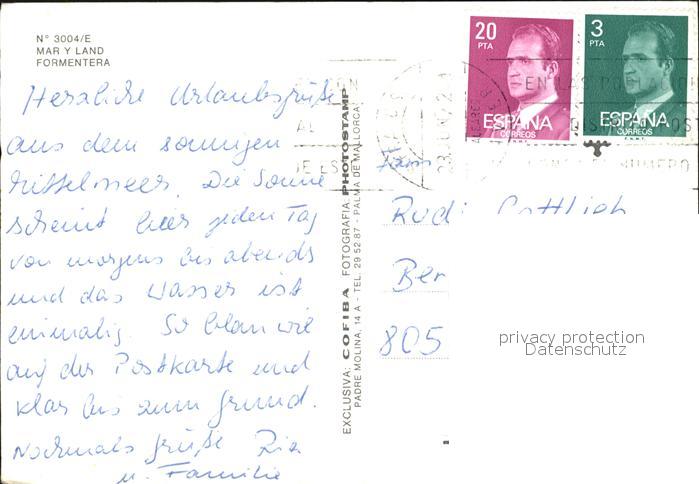 Nº 3004/E
MAR Y LAND
FORMENTERA
Herzliche Urlaubsgrüße
aus dem sonnigen
Mittelmeer. Die Sonne
scheint hier jeden Tag
von morgens bis abends
und das Wasser ist
einmalig. So blau wie
auf der Postkarte und
klar bis zum Grund.
Nochmals Grüße Ria
u. Familie
EXCLUSIVA: COFIBA FOTOGRAFIA: PHOTOSTAMP
PADRE MOLINA, 14 A - TEL. 29 52 87 - PALMA DE MALLORCA
20
PTA
ESPAÑA
CORREOS
F.N.M.T.
3
PTA
ESPAÑA
CORREOS
F.N.M.T.
Fam
Rudi
Ber
805
privacy protection
Datenschutz